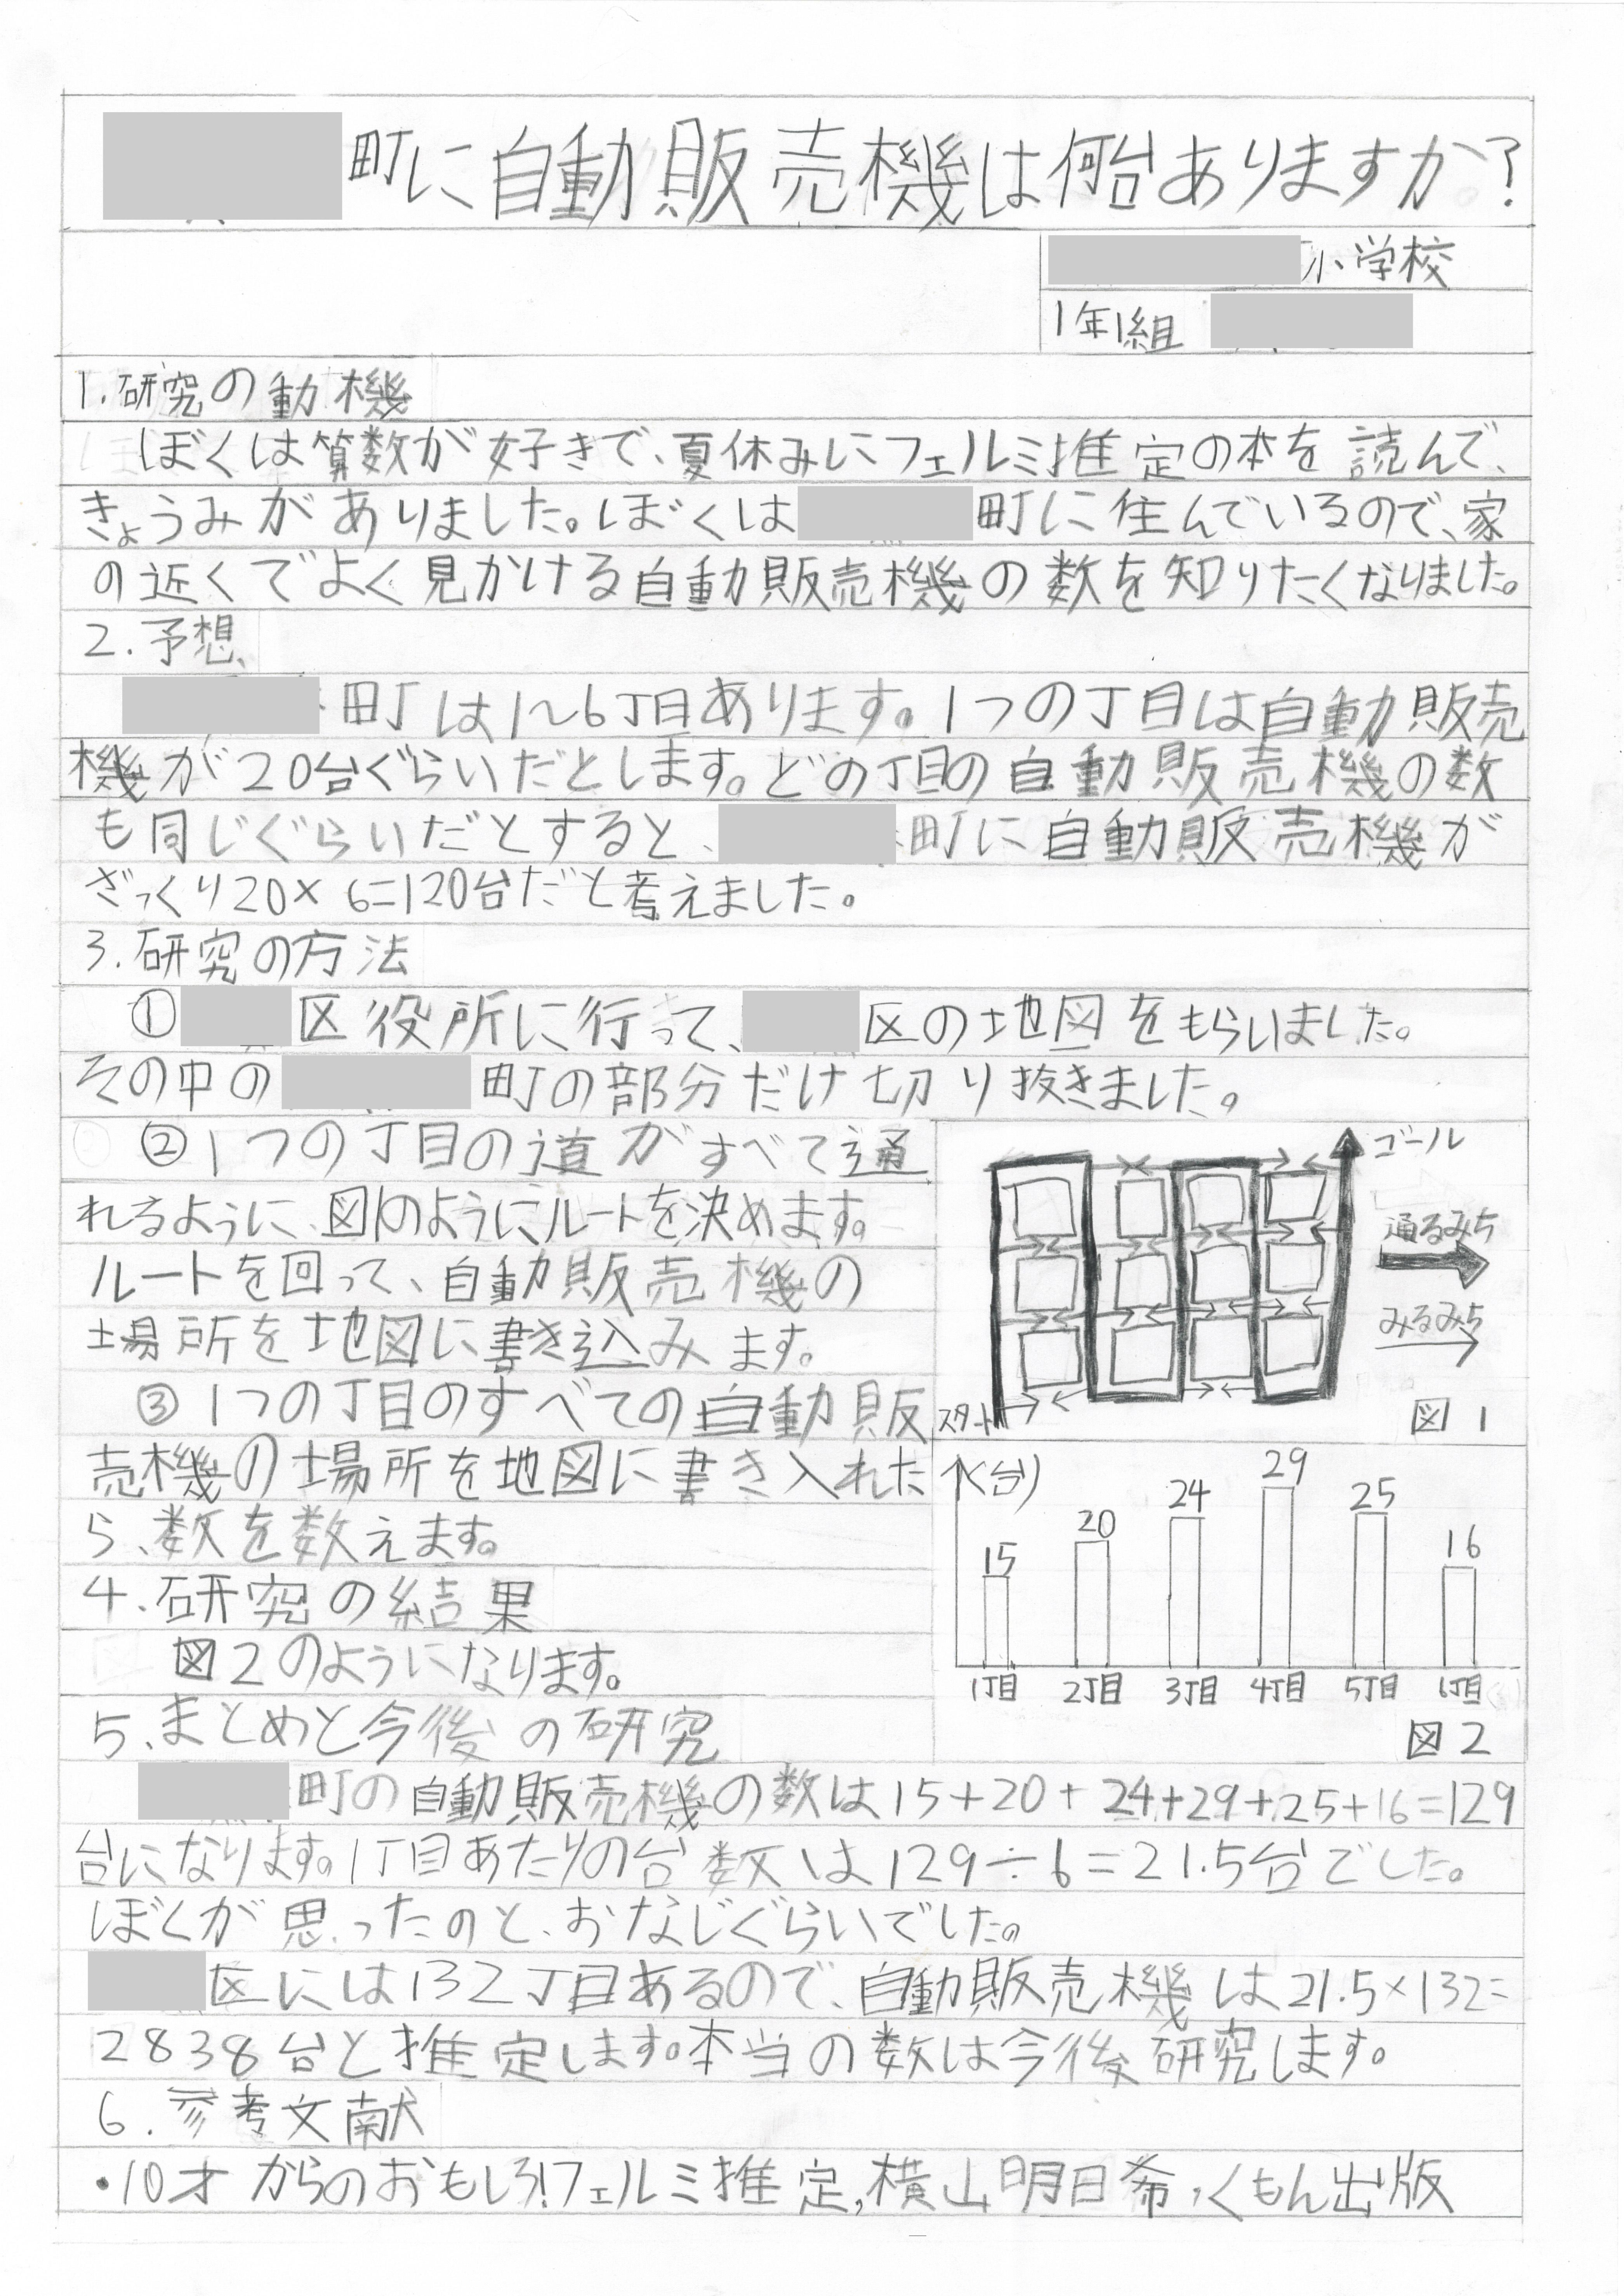 町に自動販売機は何台ありますか?
小学校
1年1組
1.研究の動機
ぼくは算数が好きで、夏休みにフェルミ推定の本を読んで、
きょうみがありました。ぼくは
町に住んでいるので、家
の近くでよく見かける自動販売機の数を知りたくなりました。
2.予想
町は1~6丁目あります。1つの丁目は自動販売
機が20台ぐらいだとします。どの丁目の自動販売機の数
も同じぐらいだとすると、
町に自動販売機が
ざっくり20×6=120台だと考えました。
3.研究の方法
①
区役所に行って、
区の地図をもらいました。
その中の
町の部分だけ切り抜きました。
②1つの丁目の道がすべて通
れるように、図1のようにルートを決めます。
ルートを回って、自動販売機の
場所を地図に書き込みます。
③1つの丁目のすべての自動販
売機の場所を地図に書き入れた
ら、数を数えます。
ゴール
通るみち
みるみち
スタート
図1
4.研究の結果
図2のようになります。
(台)
15
20
24
29
25
16
1丁目
2丁目
3丁目
4丁目
5丁目
6丁目
図2
5、まとめと今後の研究
町の自動販売機の数は15+20+24+29+25+16=129
台になります。1丁目あたりの台数は129÷6=21.5台でした。
ぼくが思ったのと、おなじぐらいでした。
区には132丁目あるので、自動販売機は21.5×132=
2838台と推定します。本当の数は今後研究します。
6.参考文献
・10才からのおもしろ!フェルミ推定,横山明日希,くもん出版